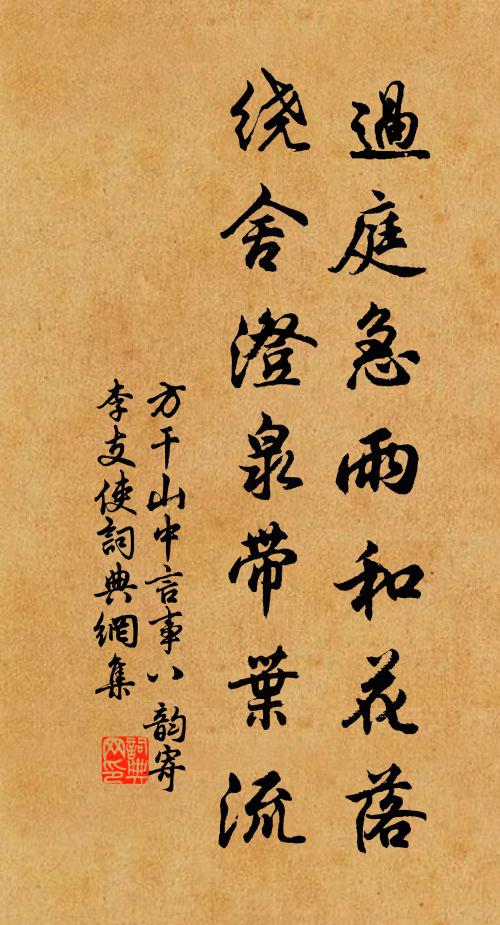 過庭急雨和花落
绕舍澄泉帶葉流
方干山中言事八韵寄
李支使詞典網集
詞典
网印